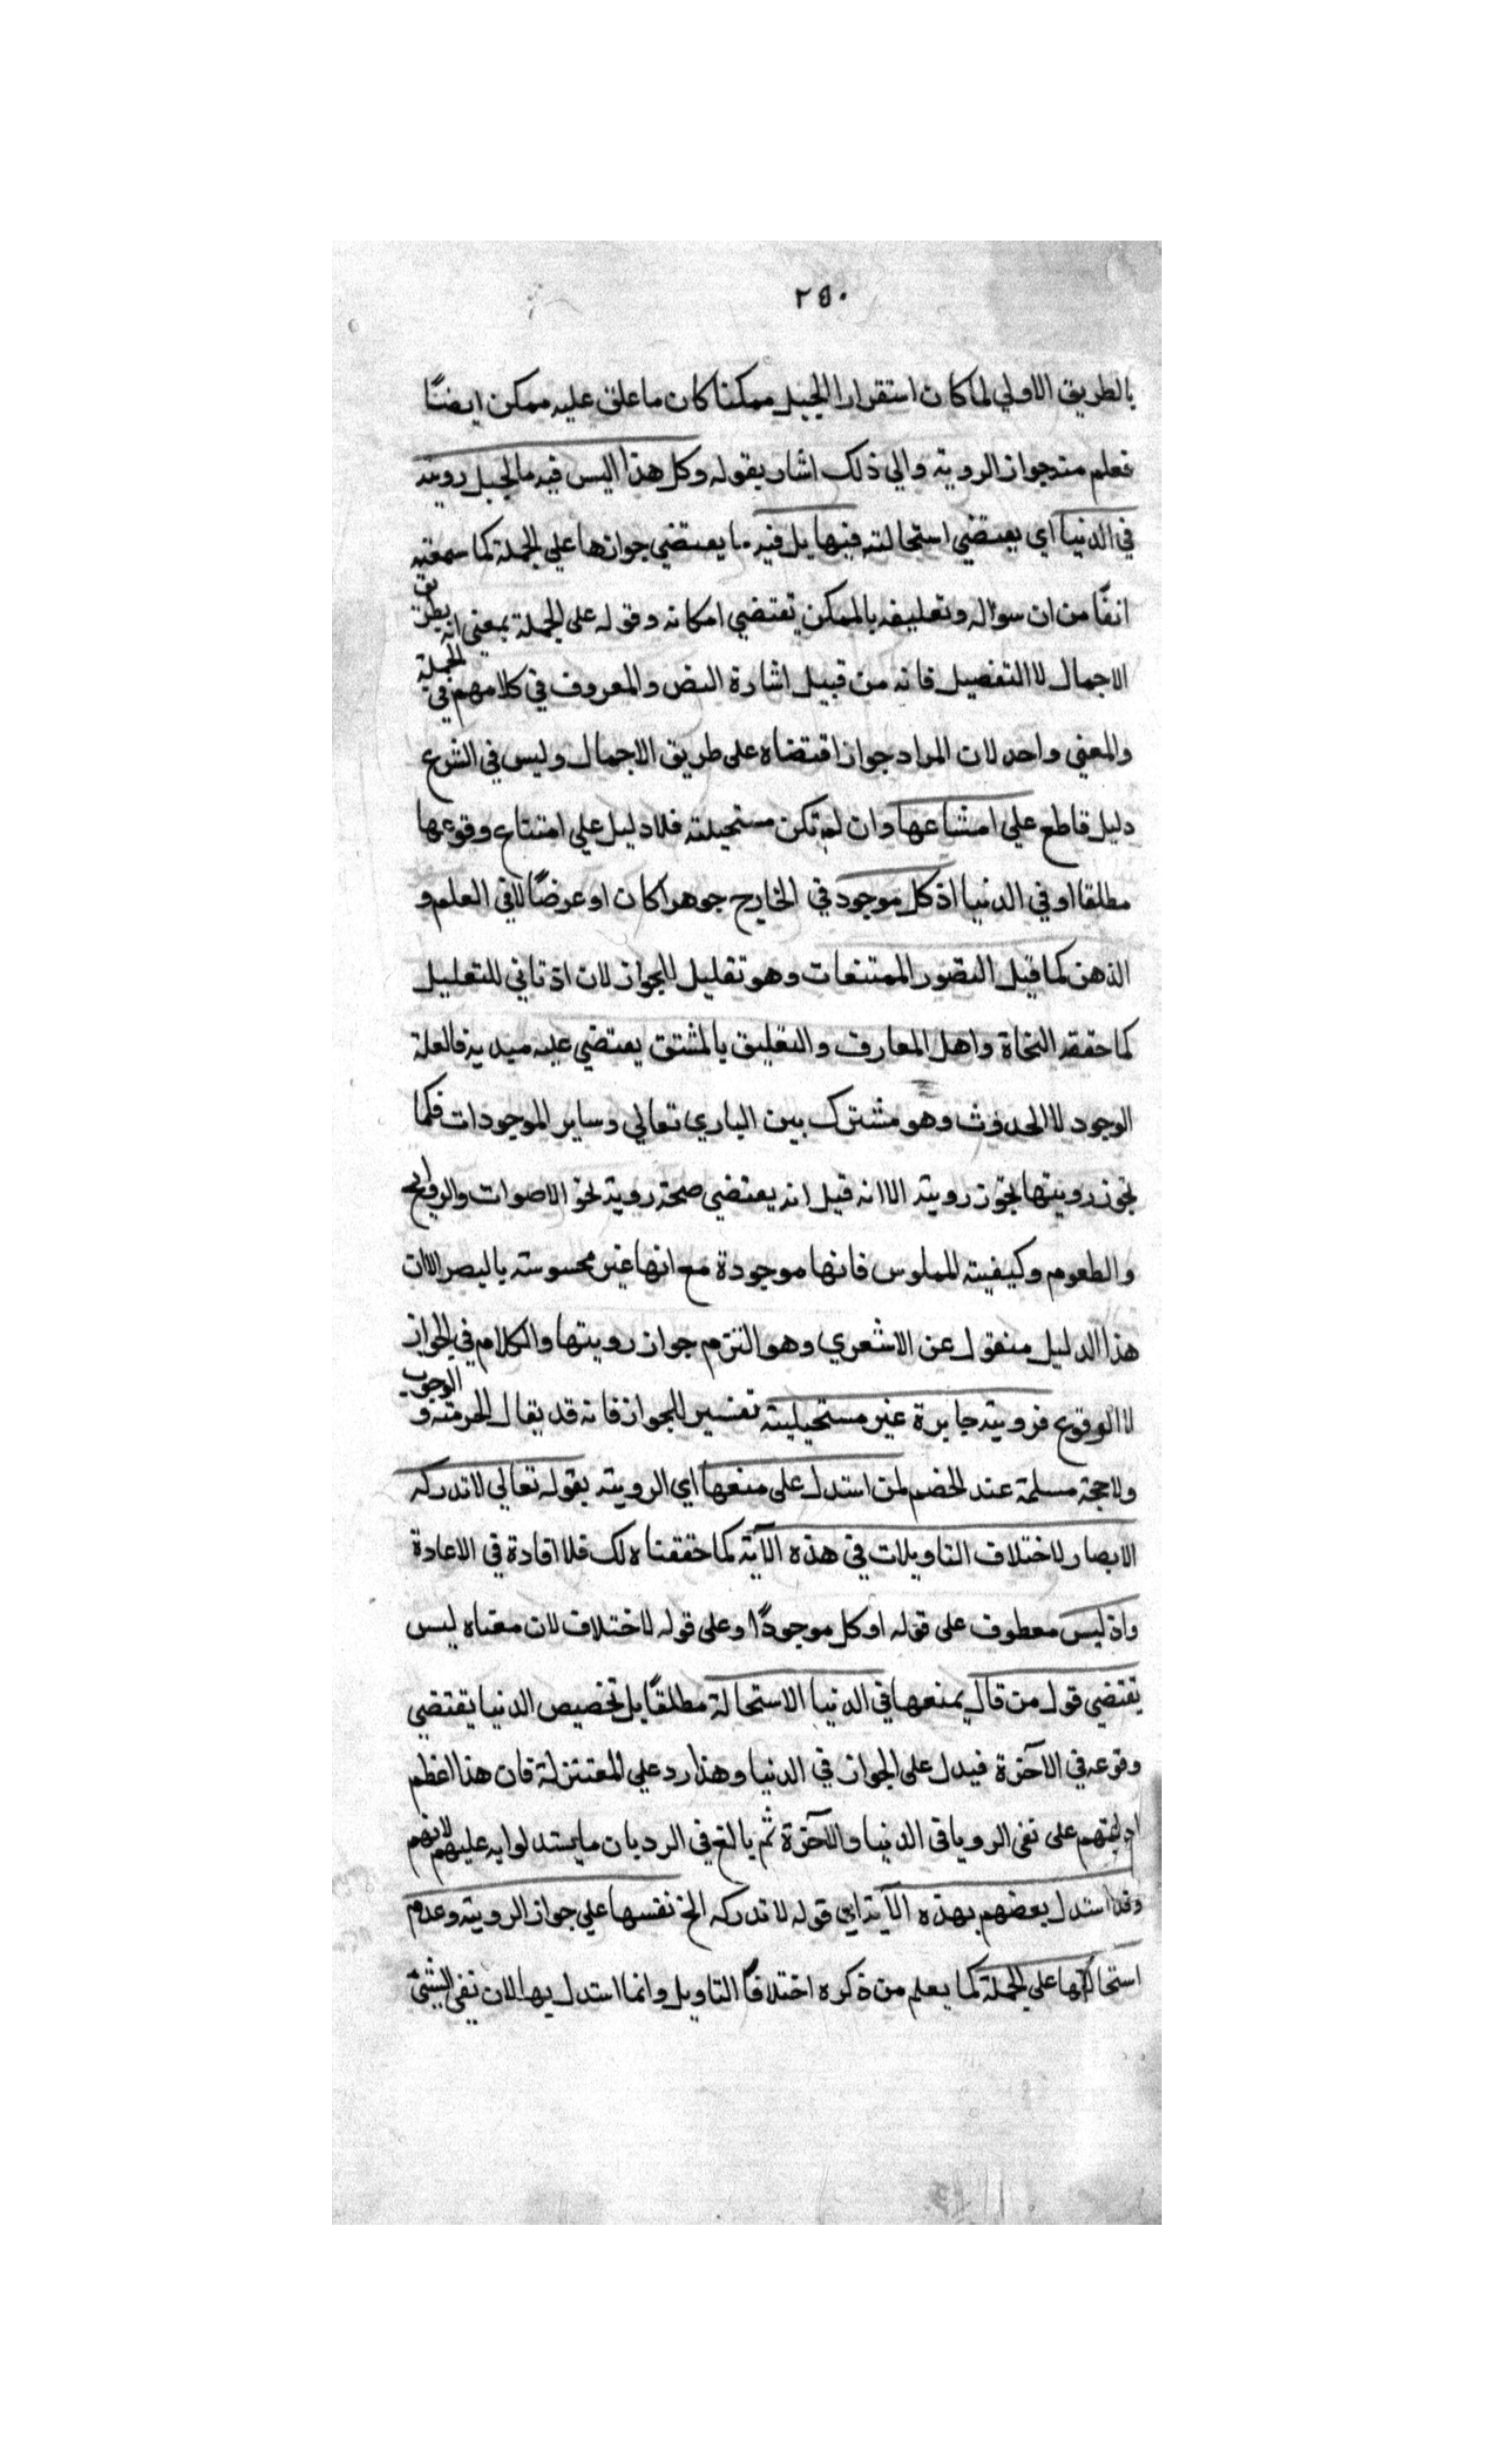 ٢٥٠
بالطريق الاولي لما كان استقرارا لجبل ممكنا كان ما علق عليه ممكن ايضًا
فعلم منه جواز الروية والي ذلك اشار بقوله وكل هذا اليس فيه ما لجبل رويته
في الدنيا اي يقتضي استحالته فيها بل فيه ما يقتضي جوازها علي الجملة كما سمعته
انفًا من ان سؤاله وتعليقه بالممكن يقتضي امكانه وقوله علي الجملة بمعني انه بطريق
الاجمال لا التفصيل فانه من قبيل اشارة النص والمعروف في كلامهم في الجملة
والمعني واحد لان المراد جواز اقتضاه على طريق الاجمال وليس في الشرع
دليل قاطع علي امتناعها وان لم تكن مستحيلته فلا دليل علي امتناع وقوعها
مطلقا او في الدنيا اذ كل موجود في الخارج جوهرا كان او عرضًا لا في العلم و
الذهن كما قيل التصور الممتنعات وهو تعليل للجواز لان اذ تاني للتعليل
كما حققه النحاة واهل المعارف والتعليق بالمشتق يقتضي عليه مبديه فالعلة
الوجود لا الحدوث وهو مشترك بين الباري تعالي وساير الموجودات فكما
تجوز رويتها تجوز رويته الا انه قيل انه يقتضي صحة روية نحو الاصوات والروايح
والطعوم وكيفيته للملوس فانها موجودة مع انها غير محسوسته بالبصر الا ان
هذا الدليل منقول عن الاشعري وهو التزم جواز رويتها والكلام في الجواز
لا الوقوع فرويته جايزة غير مستحيليته تفسير للجواز فانه قد يقال الحرمته و الوجوب
ولا حجة مسلمة عند الخضم لمن استدل على منعها اي الروية بقوله تعالي لا تدركه
الابصار لاختلاف التاويلات في هذه الآية كما حققناه لك فلا افادة في الاعادة
واذ ليس معطوف على قوله او كل موجودًا وعلى قوله لاختلاف لان معناه ليس
يقتضي قول من قال بمنعها في الدنيا الاستحالة مطلقًا بل تخصيص الدنيا يقتضي
وقوعه في الآخرة فيدل على الجواز في الدنيا وهذا رد علي المعتزلة فان هذا اعظم
ادلتهم على نفى الرويا في الدنيا والآخرة ثم بالغ في الرد بان ما يستدلوا به عليهم لانهم
وقد استدل بعضهم بهذه الآية اي قوله لا تدركه الخ نفسها علي جواز الروية وعدم
استحالتها على الجملة كما يعلم من ذكره اختلافًا التاويل وانما استدل بها لان نفي الشئ